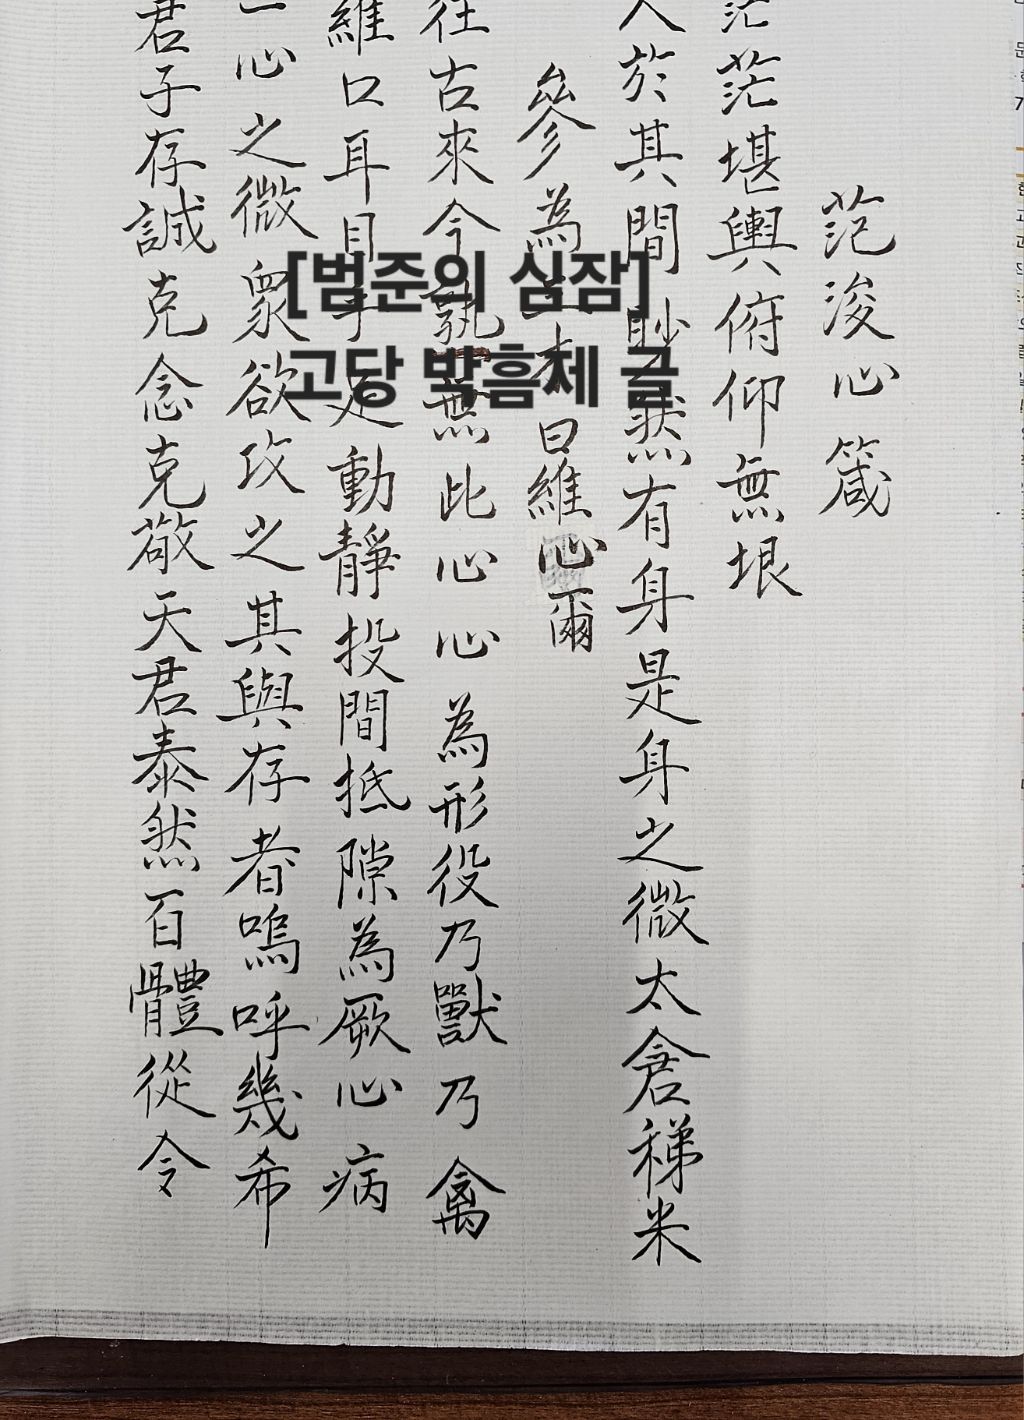 [범준의 심잠]
고당 박흠제 글
范浚心箴
茫茫堪輿俯仰無垠
人於其間眇然有身是身之微太倉稊米
參為三才曰維心爾
往古來今孰無此心心為形役乃獸乃禽
維口耳目手足動靜投間抵隙為厥心病
一心之微衆欲攻之其與存者嗚呼幾希
君子存誠克念克敬天君泰然百體從令